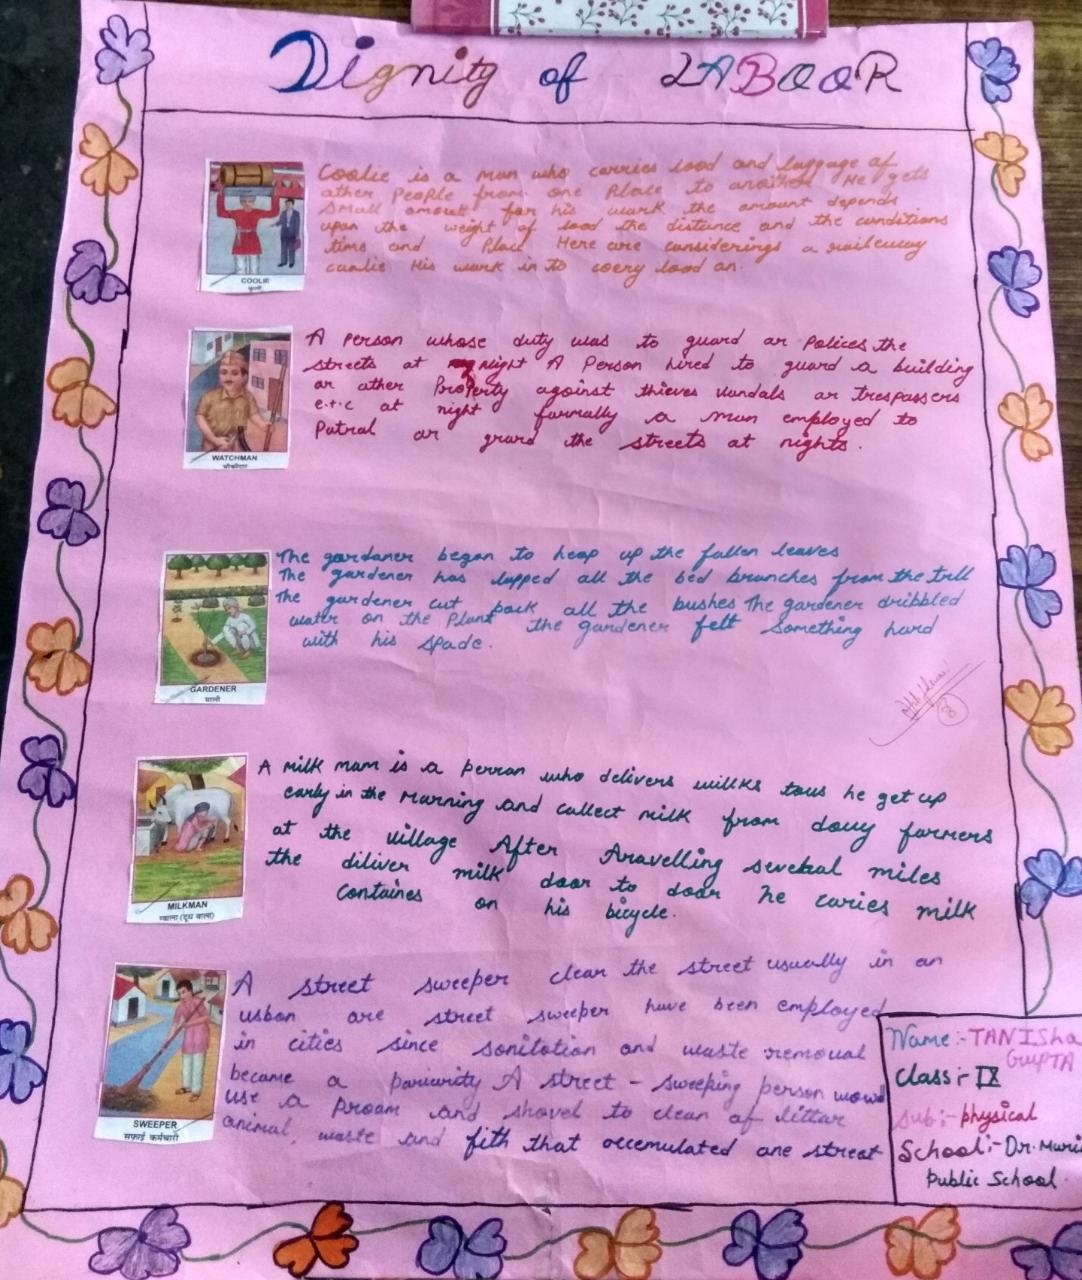 Dignity of LABOOR
Coolie is a man who carries lood and luggage of
other People from one Place to another He gets
small amount for his work the amount depends
upon the weight of lood the distance and the conditions
time and Place Here are considerings a railway
coolie His work in to coery lood on.
COOLIE
कुली
A person whose duty was to guard or Polices the
streets at Night A Person hired to guard a building
or other Property against thieves Vandals or trespassers
e.t.c at night formally a man employed to
Patral or grard the streets at nights.
WATCHMAN
चौकीदार
The gardaner began to heap up the fallen leaves
The gardener has lopped all the bed branches from the trll
The gardener cut back all the bushes The gardener dribbled
water on the Plant The gardener felt something hard
with his spade.
GARDENER
माली
8
A milk mam is a perron who delivers willks tous he get up
early in the Morning and collect milk from douy farmers
at the village After Aravelling sevekal miles
the diliver milk door to door he caries milk
containes on his bicycle.
MILKMAN
ग्वाला (दूध वाला)
A street sweeper clean the street usually in an
usban are street sweeper have been employed
in cities since sonitation and waste removal
became a pariurity A street - sweeping person wowd
use a Proam and shovel to clean of littar
animal, waste and fith that occemulated one street
SWEEPER
सफ़ाई कर्मचारी
Name:- TANISha
Gwpta
Class:- IX
Sub:- physical
School:- Dr.
Public School.